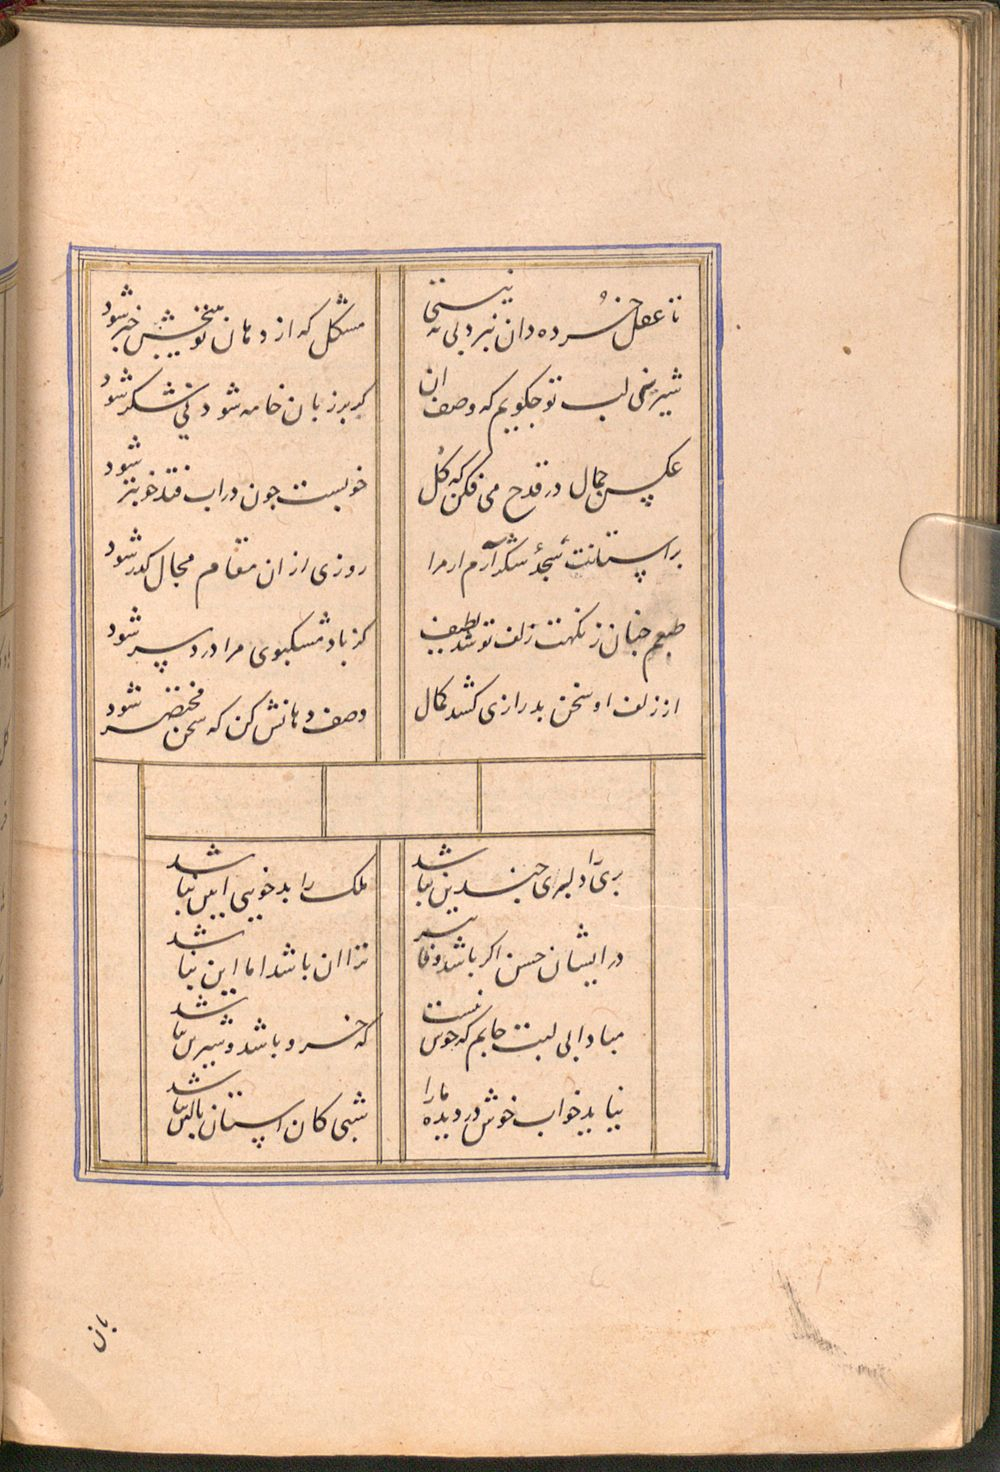 تا عقل خرده دان نبرد پی به نیستی
مشکل که از دهان تو هیچش خبر شود
شیرینی لب تو چگویم که وصف ان
گر بر زبان خامه شود نی شکر شود
عکس جمال در قدح می فکن که گل
خوبست چون در اب فتد خوبتر شود
بر استانت سجدهٔ شکر آرم ار مرا
روزی از ان مقام مجال گذر شود
طبعم چنان ز نکهت زلف تو شد لطیف
کز باد مشکبوی مرا درد سر شود
از زلف او سخن بدرازی کشد کمال
وصف دهانش کن که سخن مختصر شود
پری را دلبری چندین نباشد
ملک را بد خویی ایین نباشد
در ایشان حسن اگر باشد وفا نیز
ترا ان باشد اما این نباشد
مبادا بی لبت جانم که خوش نیست
که خسرو باشد و شیرین نباشد
نیاید خواب خوش در دیده مارا
شبی کان استان بالین نباشد
بان